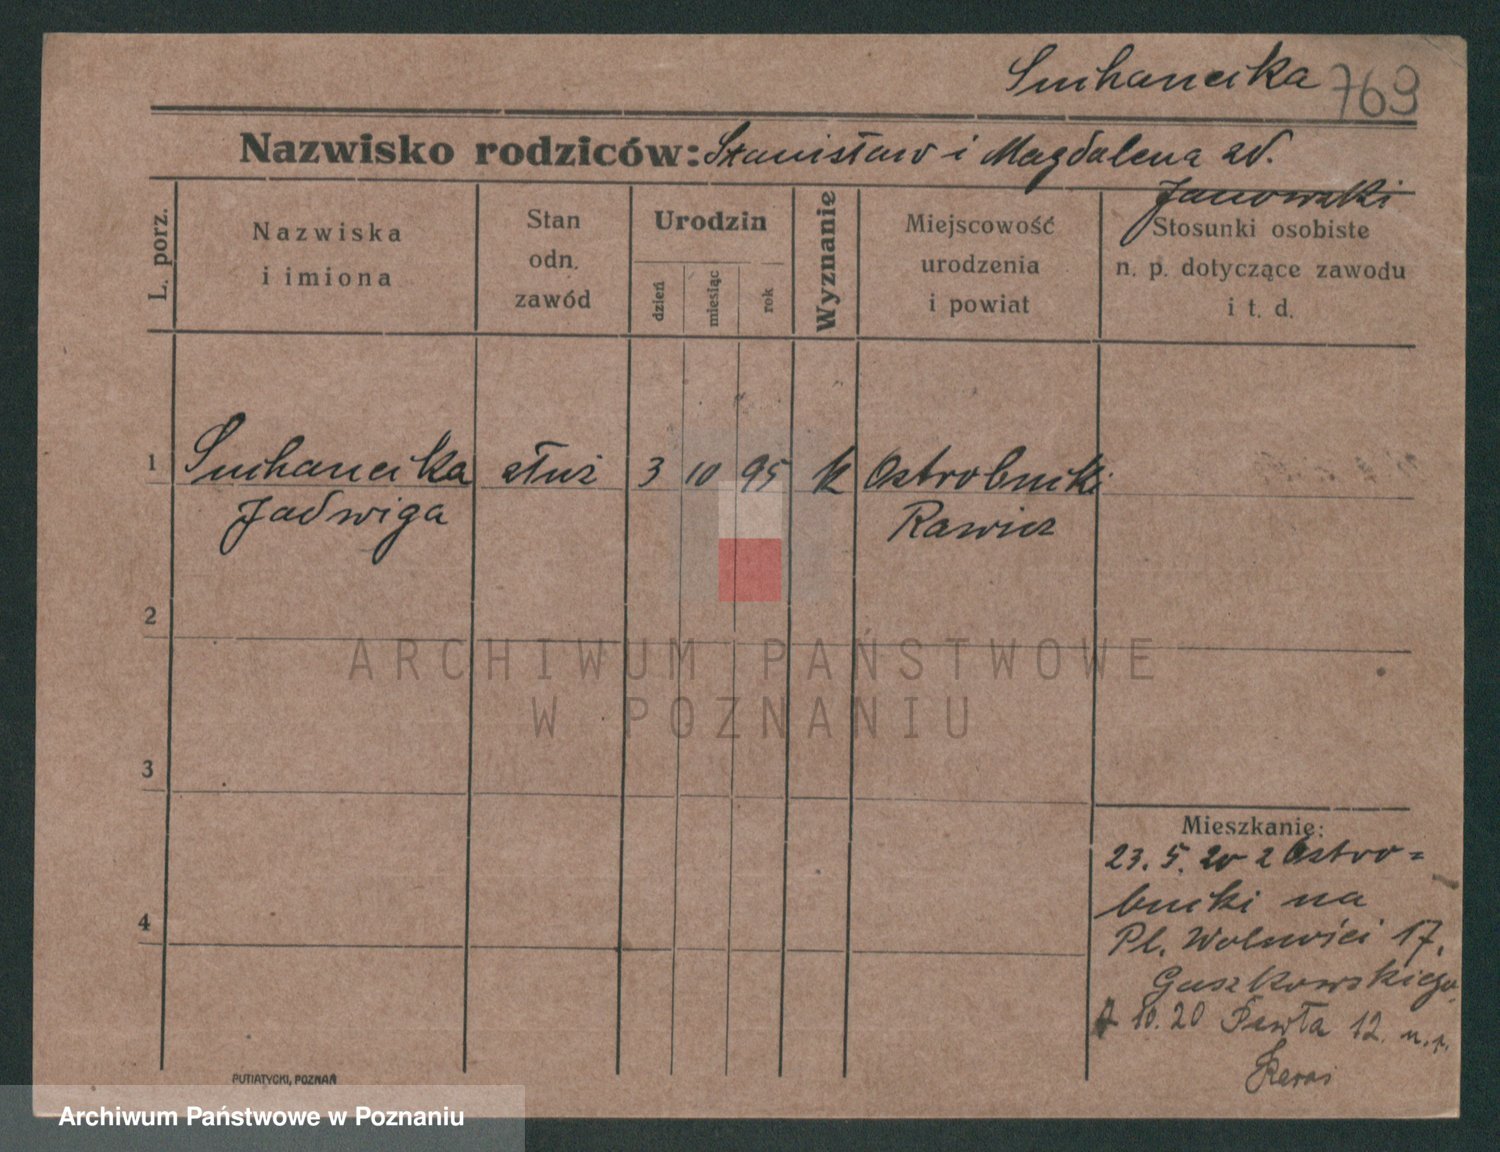 Suchanecka 769
Nazwisko rodziców: Stanisław i Magdalena
Janowski
L. porz.
Nazwiska
i imiona
Stan
odn.
zawód
Urodzin
dzień
miesiąc
rok
Wyznanie
Miejscowość
urodzenia
i powiat
Stosunki osobiste
n. p. dotyczące zawodu
i t. d.
1 Suchanecka służ 3 10 95 k Ostrobudki
Jadwiga Rawicz
2
ARCHIWUM PAŃSTWOWE
W POZNANIU
3
4
Mieszkanie:
23. 5. 20 z Ostro=
budki na
Pl. Wolności 17.
Guszkowskiego
10. 20 Pawła 12.
PUTIATYCKI, POZNAŃ
Archiwum Państwowe w Poznaniu